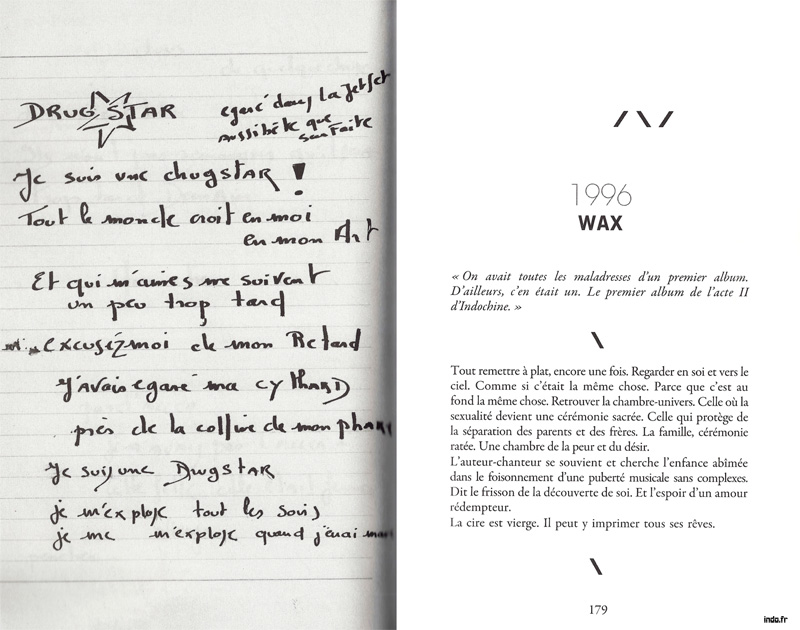 DRUG STAR
egaré dans la Jetset
aussi bête que
sans Faite
Je suis une drugstar !
Tout le monde croit en moi
en mon Art
Et qui m'aimes me suivent
un peu trop tard
excusez moi de mon Retard
J'avais egaré ma cythARD
près de la colline de mon phare
Je suis une DrugstaR
je m'explose tout les soirs
je me m'explose quand j'en ai marr
/\/
1996
WAX
« On avait toutes les maladresses d'un premier album.
D'ailleurs, c'en était un. Le premier album de l'acte II
d'Indochine. »
\
Tout remettre à plat, encore une fois. Regarder en soi et vers le
ciel. Comme si c'était la même chose. Parce que c'est au
fond la même chose. Retrouver la chambre-univers. Celle où la
sexualité devient une cérémonie sacrée. Celle qui protège de
la séparation des parents et des frères. La famille, cérémonie
ratée. Une chambre de la peur et du désir.
L'auteur-chanteur se souvient et cherche l'enfance abîmée
dans le foisonnement d'une puberté musicale sans complexes.
Dit le frisson de la découverte de soi. Et l'espoir d'un amour
rédempteur.
La cire est vierge. Il peut y imprimer tous ses rêves.
\
179
indo.fr